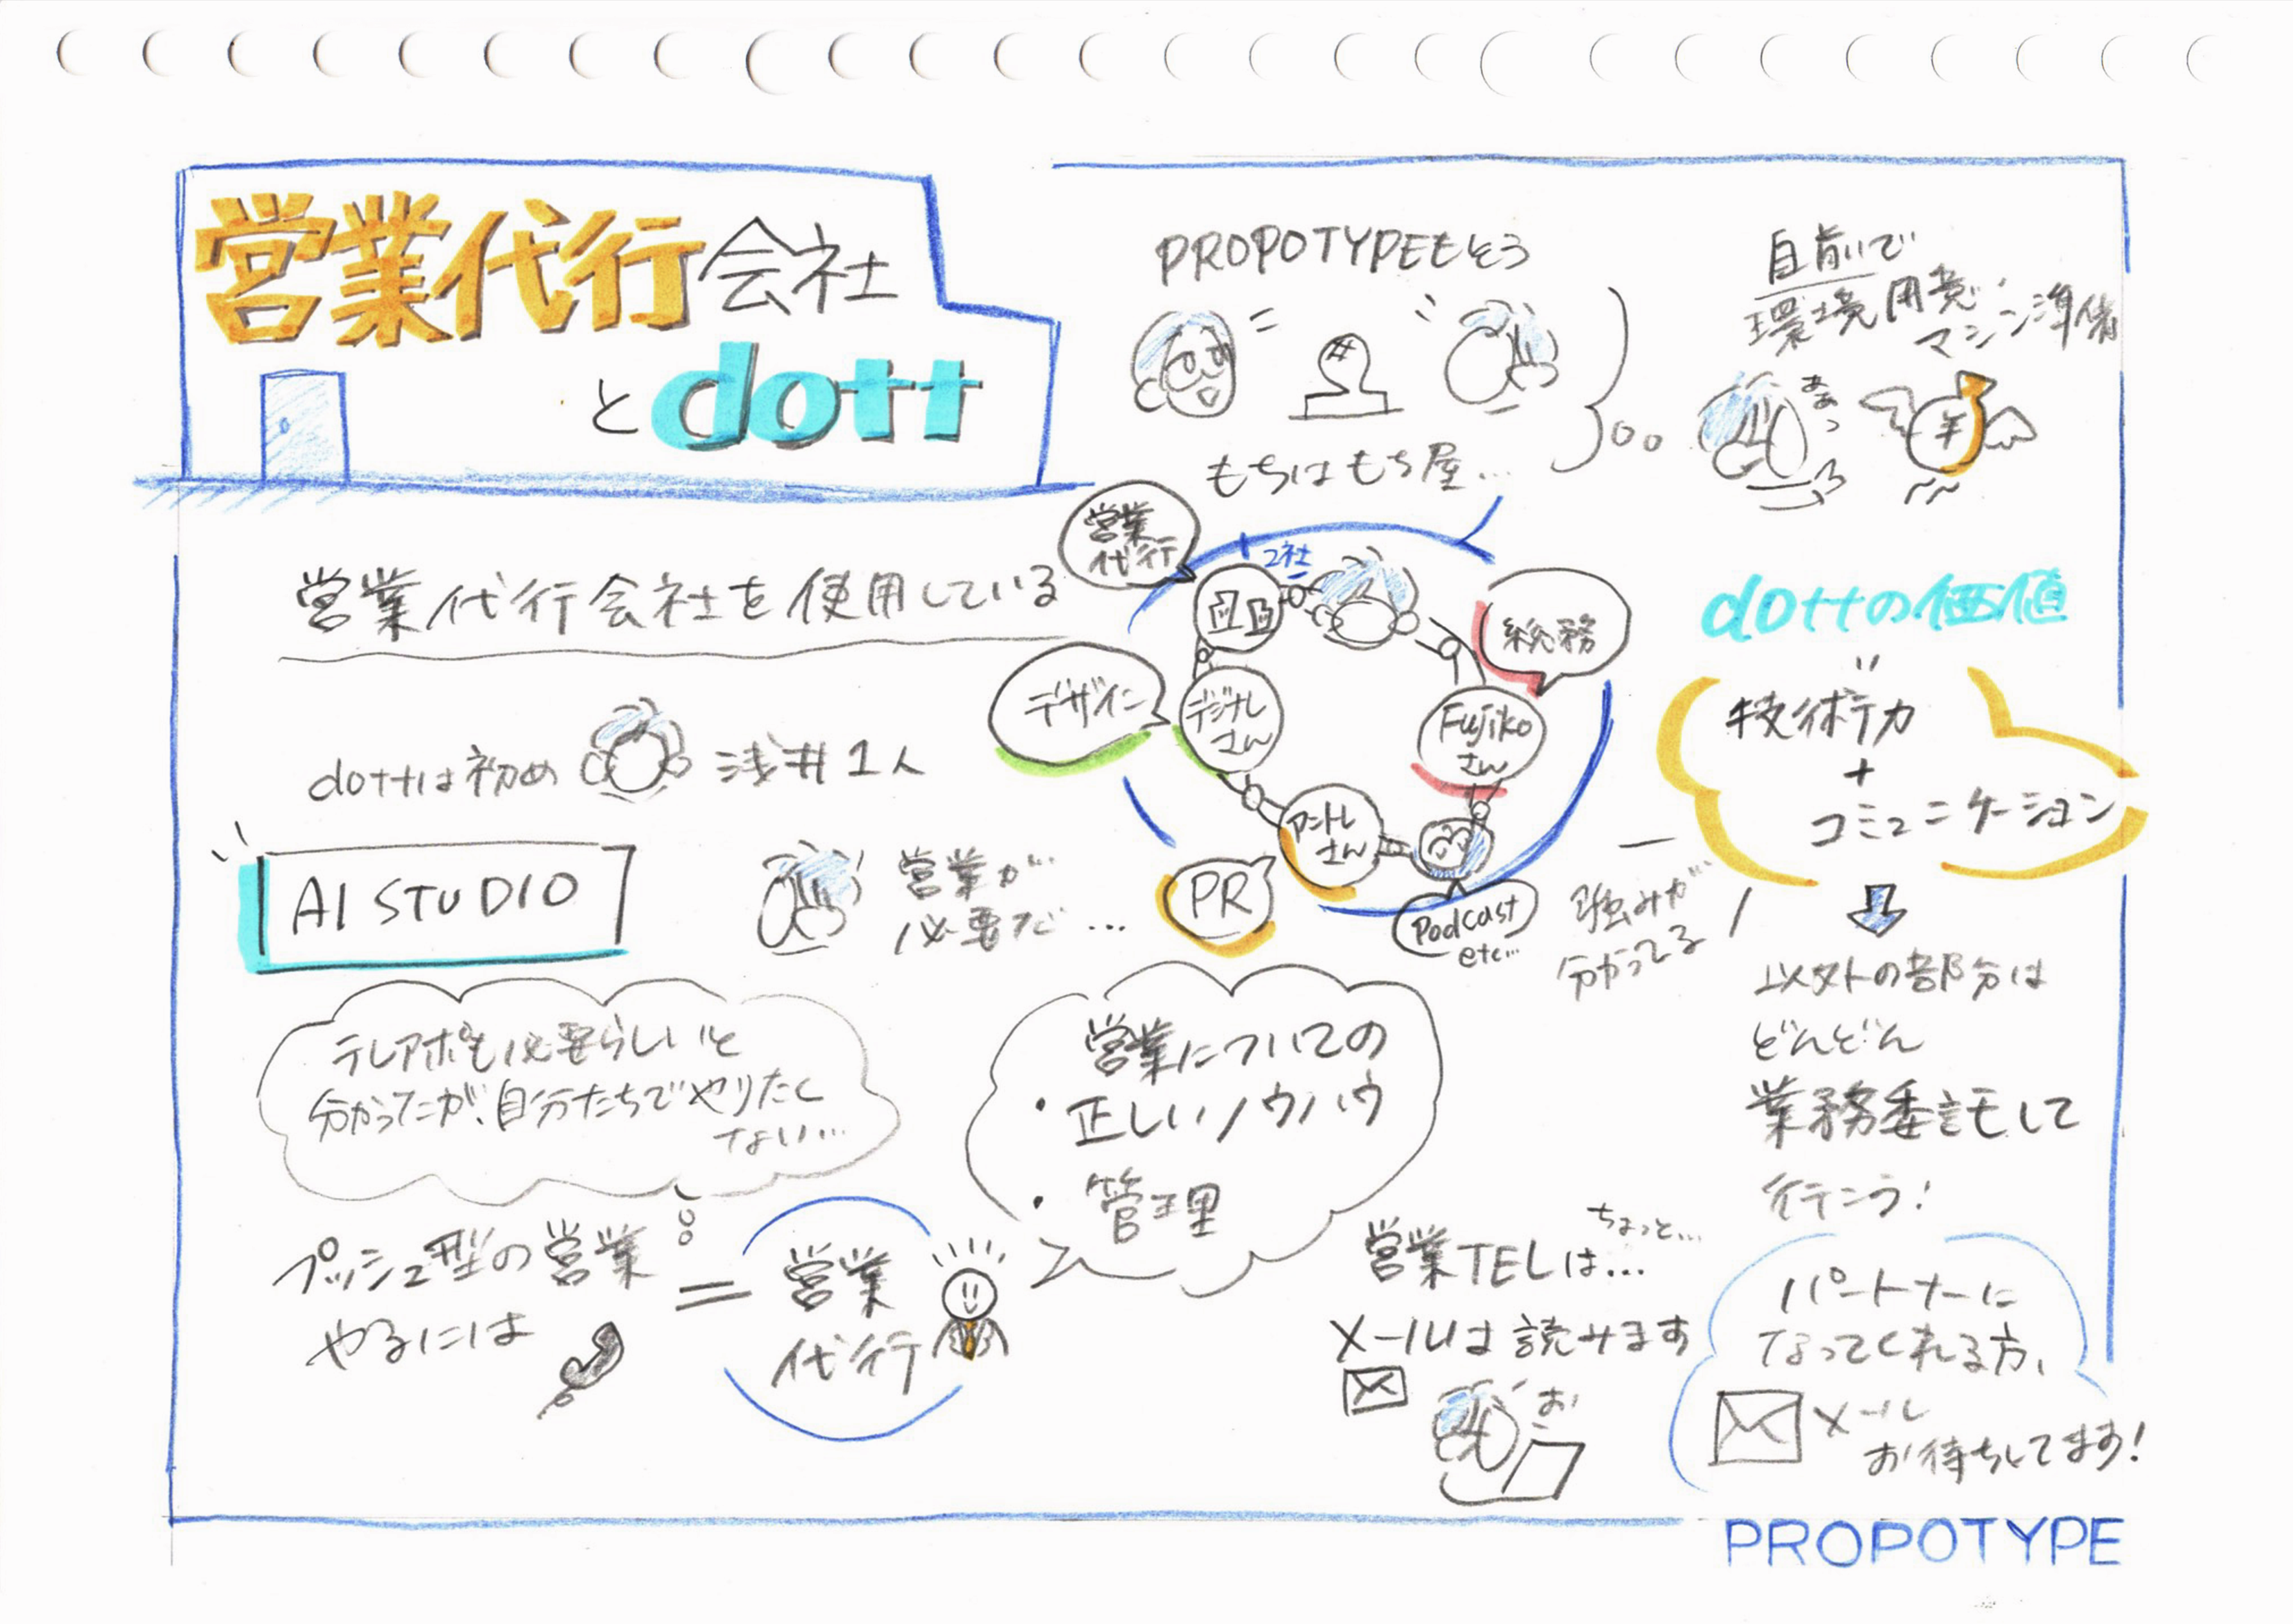 営業代行会社
とdott
営業代行会社を使用している
dottは初め
浅井1人
AI STUDIO
営業が
必要だ…
テレアポも必要らしいと
分かったが、自分たちでやりたく
ない…
プッシュ型の営業
やるには
=
営業
代行
営業についての
・正しいノウハウ
・管理
PROPOTYPEもそう
もちはもち屋…
自前で
環境用意
マシン準備
あぁっ
¥
営業
代行
2社
総務
デザイン
デジナレ
さん
Fujiko
さん
アントレ
さん
PR
Podcast
etc…
強みが
分かってる
dottの価値
技術力
+
コミュニケーション
以外の部分は
どんどん
業務委託して
行こう!
ちょっと…
営業TELは…
メールは読みます
お
パートナーに
なってくれる方、
メール
お待ちしてます!
PROPOTYPE